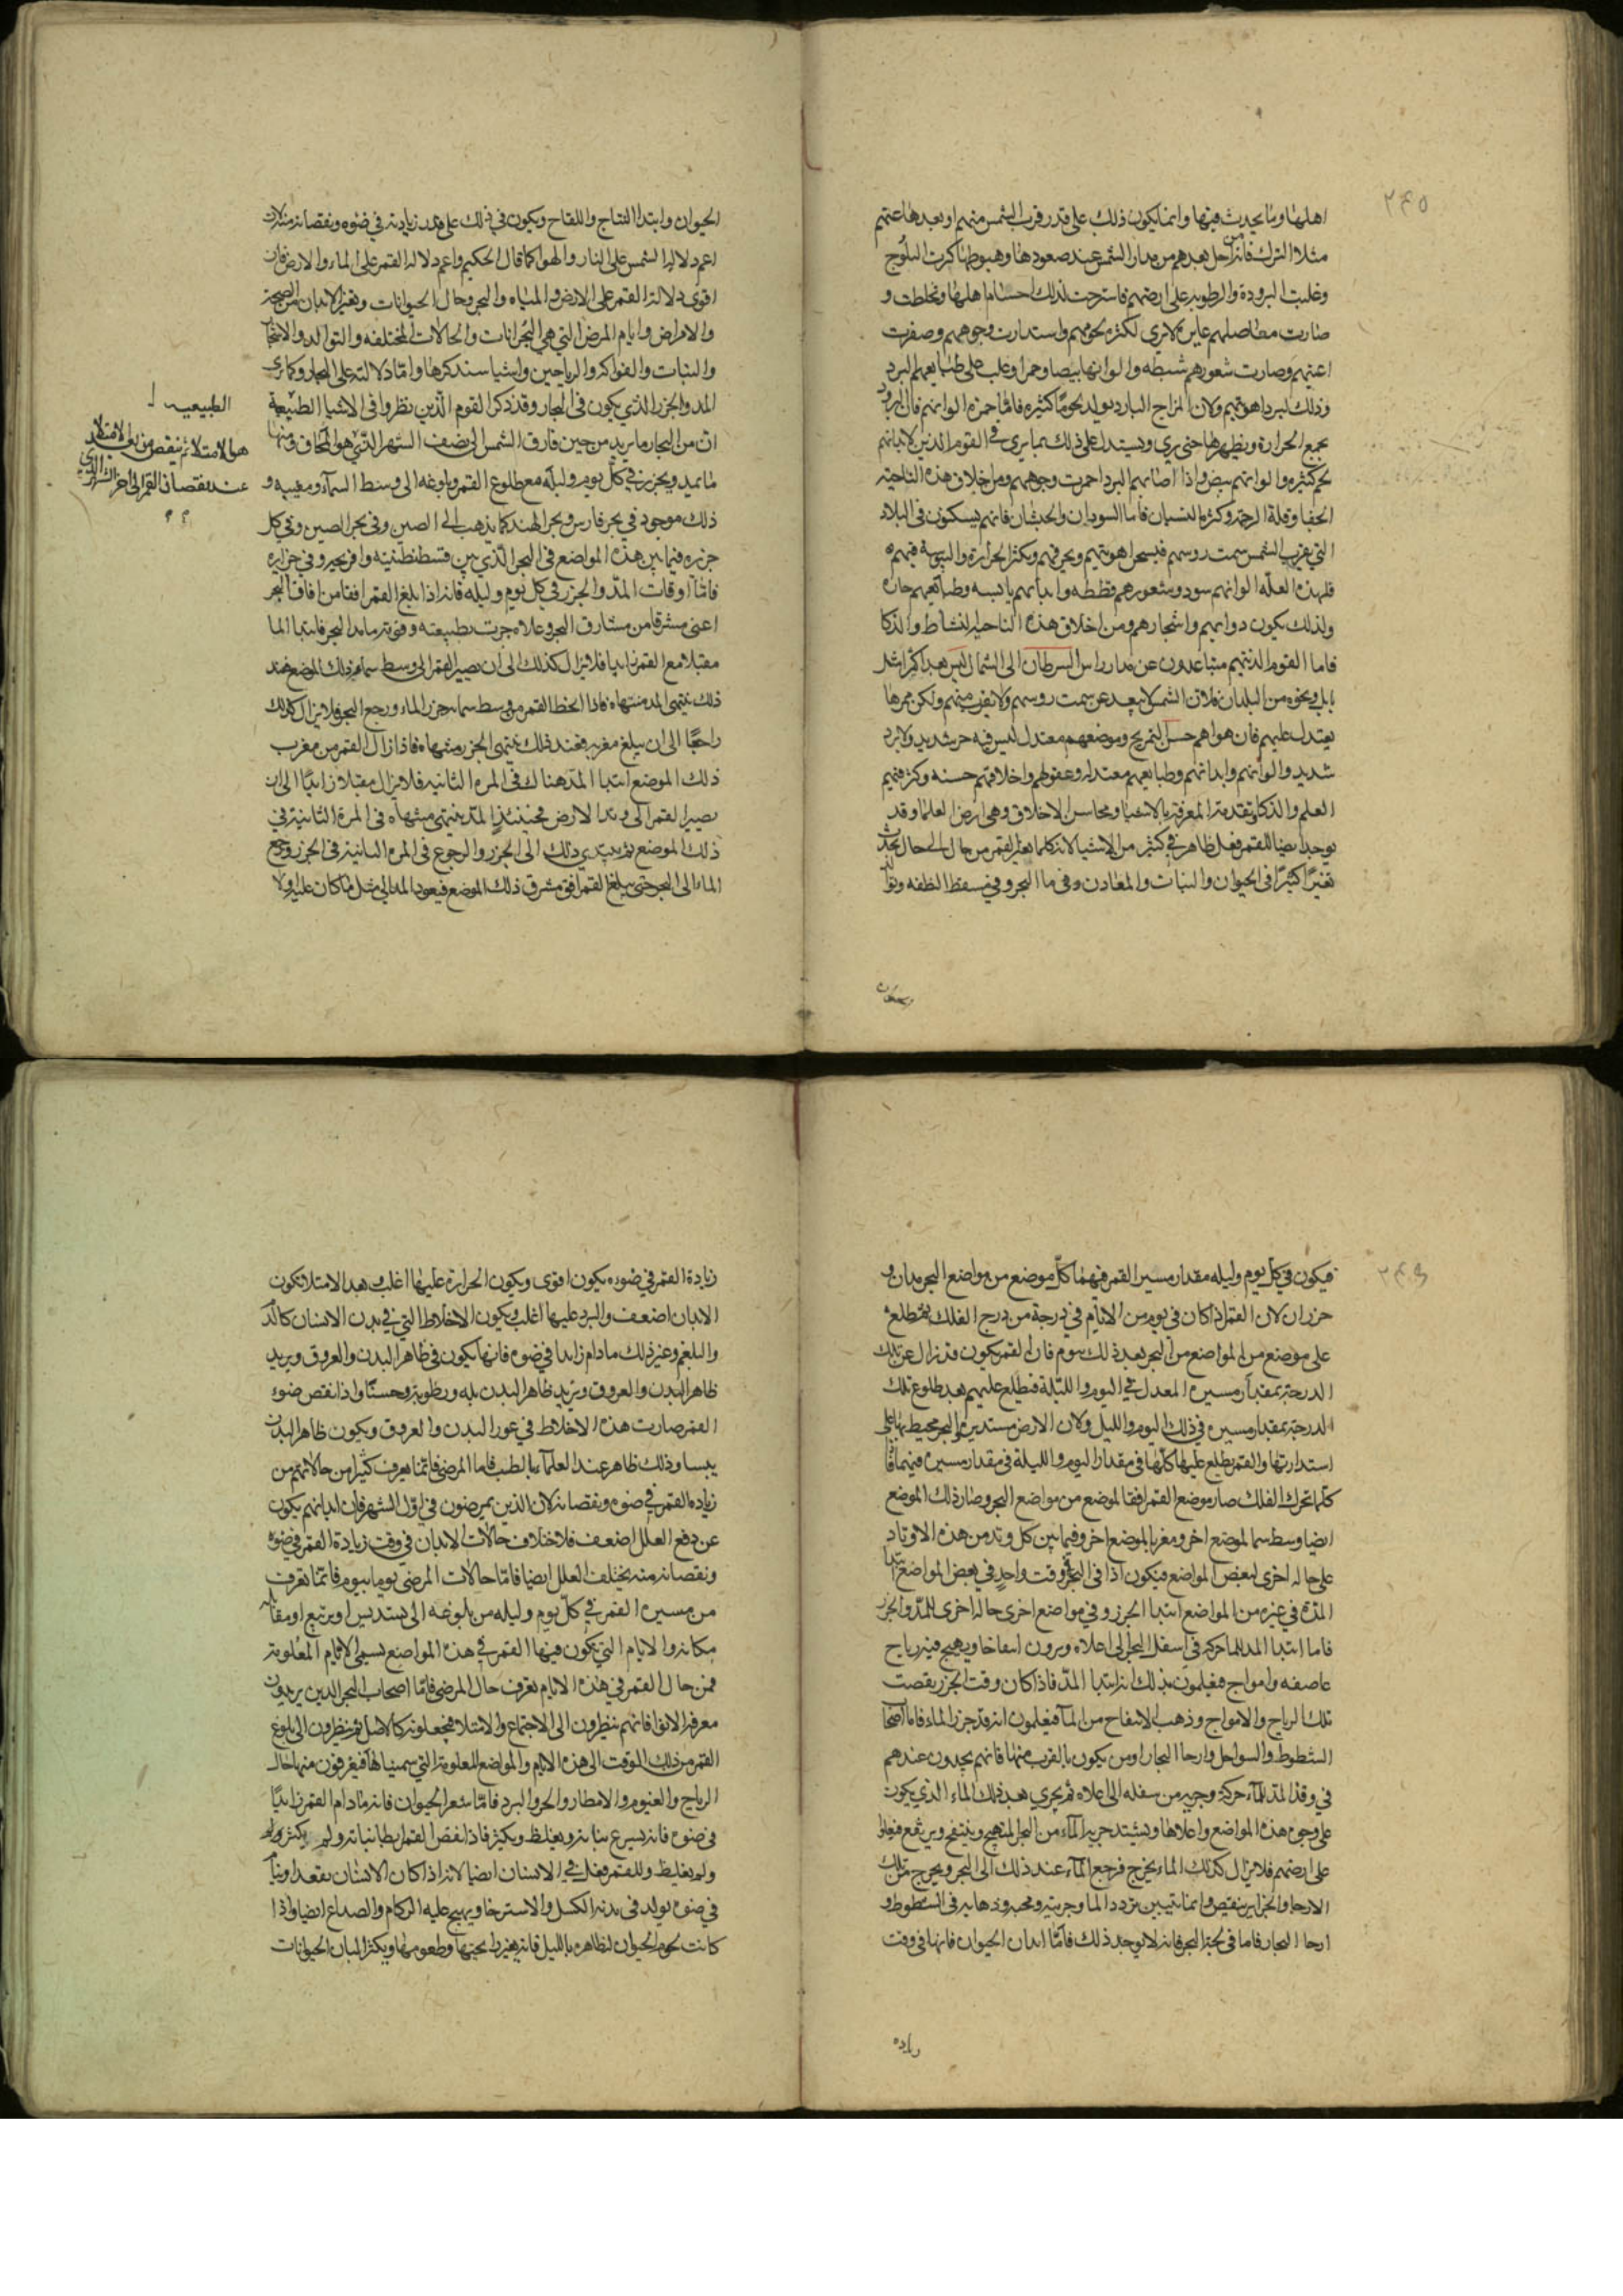 ٢٤٥
اهلها وما يحدث فيها وانما يكون ذلك على قدر قرب الشمس منهم او بعدها عنهم
مثلا الترك فانه من اجل بعدهم من مدار الشمس عند صعودها وهبوطها كثرت الثلوج
وغلبت البرودة والرطوبه على ارضهم فاسترخت لذلك اجسام اهلها وغلظت و
صارت مفاصلهم غايرة لا ترى لكثرة لحومهم واستدارت وجوههم وصغرت
اعينهم وصارت شعورهم شبطه والوانها بيضا وحمرا وغلب على طبايعهم البرد
وذلك لبرد اهويتهم ولان المزاج البارد يولد لحوما كثيره فاما حمرة الوانهم فان البرد
يجمع الحرارة ويظهرها حتى يرى ويستدل على ذلك بما يرى في القوم الذين لابدانهم
لحم كثيره والوانهم بيض واذا اصابهم البرد احمرت وجوههم ومن اخلاق هذه الناحيه
الجفا وقلة الرحمة وكثرة النسيان فاما السودان والحبشان فانهم يسكنون في البلاد
التي يقرب الشمس سمت روسهم فيسخن اهويتهم ويحرقهم ويكثر الحرارة واليبوسة فيهم
فلهذه العلة الوانهم سود وشعورهم قططه وابدانهم يابسه وطبايعهم حاره
ولذلك يكون دوابهم واشجارهم ومن اخلاق هذه الناحيه النشاط والذكا
فاما القوم الذين هم متباعدون عن مدار راس السرطان الى الشمال ليس هذا كثرا مثل
بابل ونحوه من البلدان فلان الشمس لا يبعد عن سمت روسهم ولا يقرب منهم ولكن ممرها
يعتدل عليهم فان هواهم حسن التمزيج وموضعهم معتدل ليس فيه حر شديد ولا برد
شديد والوانهم وابدانهم وطبايعهم معتدله وعقولهم واخلاقهم حسنه وكثر فيهم
العلم والذكا وتقدمة المعرفة بالاشيا ومحاسن الاخلاق وهي ارض العلما وقد
يوجد ايضا للقمر فعل ظاهر في كثير من الاشيا لانه كلما تغير القمر من حال الى حال يحدث
تغيرا كثيرا في الحيوان والنبات والمعادن وفي ما البحر وفي مسقط النطفه وتولد
الحيوان وابتدا النتاج واللقاح ويكون في ذلك على قدر زيادته في ضوه ونقصانه منه لان
اعم دلالة الشمس على النار والهوا كما قال الحكيم واعم دلالة القمر على الماء والارض فان
اقوى دلالة القمر على الارض والمياه والبحر وحال الحيوانات وتغير الابدان من الصحة
والامراض وايام المرض التي هي البحرانات والحالات المختلفه والتوالد والاشجار
والنبات والفواكه والرياحين واشيا سنذكرها واما دلالته على البحار وكما يرى
المد والجزر الذي يكون في البحار وقد ذكر القوم الذين نظروا في الاشيا الطبيعة
ان من البحار ما يزيد من حين فارق الشمس الى نصف الشهر الذي هو المحاق ومنها
ما يمد ويجزر في كل يوم وليلة مع طلوع القمر وبلوغه الى وسط السماء ومغيبه و
ذلك موجود في بحر فارس وبحر الهند كما يذهب الى الصين وفي بحر الصين وفي كل
جزيره فيما بين هذه المواضع في البحر الذي بين قسطنطنيه وافرنجه وفي جزايره
فاما اوقات المد والجزر في كل يوم وليله فانه اذا بلغ القمر افقا من افاق البحر
اعنى مشرقا من مشارق البحر وعلاه جرت بطبيعته وقوته ما البحر فابتدا الما
مقبلا مع القمر زايدا فلا يزال كذلك الى ان يصير القمر الى وسط سما ذلك الموضع فعند
ذلك ينتهى المد منتهاه فاذا انحط القمر من وسط سمايه جزر الماء ورجع البحر فلا يزال كذلك
راجعا الى ان يبلغ مغربه فعند ذلك ينتهى الجزر منتهاه فاذا زال القمر من مغرب
ذلك الموضع ابتدا المد هناك في المره الثانيه فلا يزال مقبلا زايدا الى ان
يصير القمر الى وتد الارض فحينئذ المد ينتهى منتهاه في المرة الثانية في
ذلك الموضع ثم يبتدي ذلك الى الجزر والرجوع في المره الثانية في الجزر ورجع
الماء الى البحر حتى يبلغ القمر افق مشرق ذلك الموضع فيعود المد الى مثل ما كان عليه اولا
الطبيعيه
هو الامتلاء ثم ينقص من بعد الامتلاء
عند نقصان القمر الى اخر الشهر الذي
٢٤٦
فيكون في كل يوم وليله مقدار مسير القمر فيهما كل موضع من مواضع البحر مدان و
جزران لان القمر اذا كان في يوم من الايام في درجة من درج الفلك ثم طلع
على موضع من المواضع من البحر بعد ذلك بيوم فان القمر يكون قد زال عن تلك
الدرجة بمقدار مسيره المعدل في اليوم والليلة فيطلع عليهم بعد طلوع تلك
الدرجة بمقدار مسيره في ذلك اليوم والليل ولان الارض مستديرة والبحر محيط بها على
استدارتها والقمر يطلع عليها كلها في مقدار اليوم والليلة في مقدار مسيره فيهما فا
كلما تحرك الفلك صار موضع القمر افقا لموضع من مواضع البحر وصار ذلك الموضع
ايضا وسط سما لموضع اخر ومغربا لموضع اخر وفيما بين كل وتد من هذه الاوتاد
على حاله اخرى لبعض المواضع فيكون اذا في البحر في وقت واحد في بعض المواضع ابتدا
المد وفي غيره من المواضع ابتدا الجزر وفي مواضع اخرى حاله اخرى للمد والجزر
فاما ابتدا المد للماء حركه في اسفل البحر الى اعلاه ويرون انتفاخا ويهيج فيه رياح
عاصفه وامواج فيعلمون بذلك انه ابتدا المد فاذا كان وقت الجزر نقصت
تلك الرياح والامواج وذهب الانتفاح من الما فيعلمون انه قد جزر الماء فاما اصحاب
الشطوط والسواحل وارجا البحار ومن يكون بالقرب منها فانهم يجدون عندهم
في وقت المد للماء حركة وجريه من سفله الى اعلاه ثم يجري بعد ذلك الماء الذي يكون
على وجوه هذه المواضع واعلاها ويشتد جرية الماء من البحر المتهيج وينتفخ ويرتفع فيعلوا
على ارضهم فلا يزال كذلك الماء يخرج فرجع الماء عند ذلك الى البحر ويخرج من تلك
الارجا والجزاير ينقص وانما يتبين تردد الما وجريته ومجيه وذهابه في الشطوط و
ارجا البحار فاما في لجة البحر فانه لا يوجد ذلك فاما ابدان الحيوان فانها في وقت
زياده
زيادة القمر في ضوءه يكون اقوى ويكون الحرارة عليها اغلب وبعد الامتلا تكون
الابدان اضعف والبرد عليها اغلب ويكون الاخلاط التي في بدن الانسان كالدم
والبلغم وغير ذلك ما دام زايدا في ضوه فانها يكون في ظاهر البدن والعروق ويزيد
ظاهر البدن والعروق ويزيد ظاهر البدن بله ورطوبة وحسنا واذا نقص ضوء
القمر صارت هذه الاخلاط في غور البدن والعروق ويكون ظاهر البدن
يبسا وذلك ظاهر عند العلماء بالطب فاما المرضى فانما يعرف كثيرا من حالاتهم من
زياده القمر في ضوه ونقصانه لان الذين يمرضون في اول الشهر فان ابدانهم يكون
عن دفع العلل اضعف فلاختلاف حالات الابدان في وقت زيادة القمر في ضوه
ونقصانه منه يختلف العلل ايضا فاما حالات المرضى يوما بيوم فانما تعرف
من مسيره القمر في كل يوم وليله من بلوغه الى تسديس او تربيع او مقابلة
مكانه والايام التي يكون فيها القمر في هذه المواضع يسمى الايام المعلومة
فمن حال القمر في هذه الايام تعرف حال المرضى فاما اصحاب البحر الذين يريدون
معرفة الانوا فانهم ينظرون الى الاجتماع والامتلا فيجعلونه كالاصل ثم ينظرون الى بلوغ
القمر من ذلك الوقت الى هذه الايام والمواضع المعلومة التي سميناها فيعرفون منها حال
الرياح والغيوم والامطار والحر والبرد فاما شعر الحيوان فانه ما دام القمر زايدا
في ضوه فانه يسرع نباته ويغلظ ويكثر فاذا نقص القمر ابطا نباته ولم يكثر
ولم يغلظ وللقمر فعل في الانسان ايضا لانه اذا كان الانسان يقعد او ينام
في ضوه يولد في بدنه الكسل والاسترخا ويهيج عليه الزكام والصداع ايضا واذا
كانت لحوم الحيوان ظاهره بالليل فانه يغير رايحتها وطعومها ويكثر البان الحيوانات